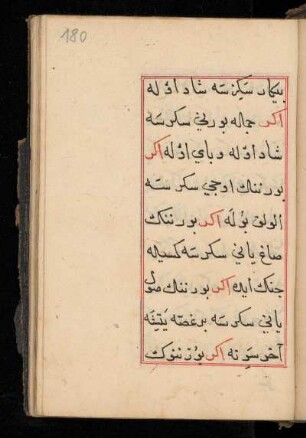 180
بيكار سَكِرْسَه شاد اوْلَه
اكر جمله بورني سكرسَه
شاد اوْلَه و باي اوْلَه اكر
بورننك اوجي سكرسَه
الوُلِق بوُلَه اكر بورننك
صاغ ياني سكرسَه كمسيله
جنك ايده اكر بورننك صول
ياني سكرسه برغصّه يَتِشَه
آخر سَوِنه اكر بورننوُك